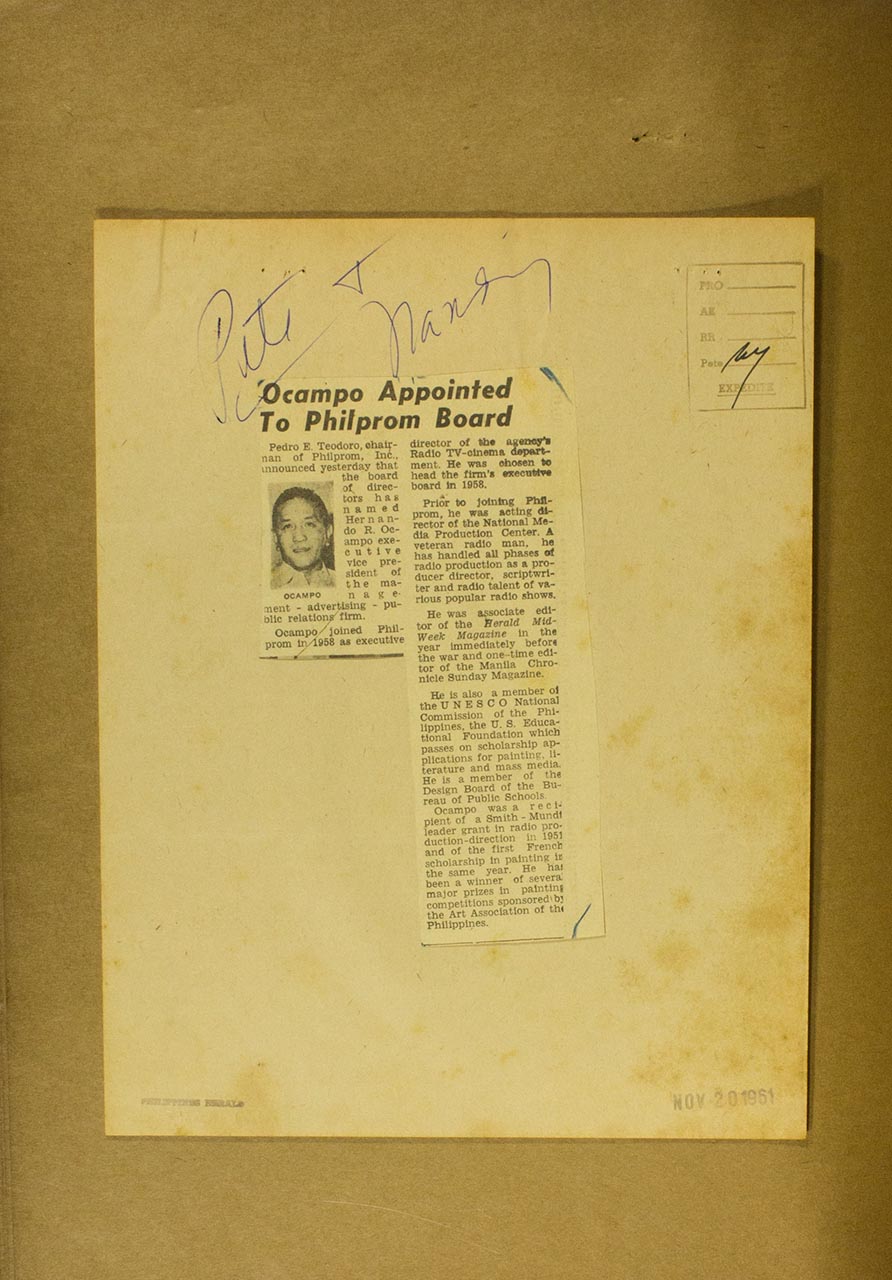 Pete T
Nandy
PRO
AE
RR
Pete
EXPEDITE
Ocampo Appointed
To Philprom Board
Pedro E. Teodoro, chair-
man of Philprom, Inc.,
announced yesterday that
the board
of direc-
tors has
named
Hernan-
do R. Oc-
ampo exe-
cutive
vice pre-
sident of
the ma-
nage-
OCAMPO
ment - advertising - pu-
blic relations firm.
Ocampo joined Phil-
prom in 1958 as executive
director of the agency's
Radio TV-cinema depart-
ment. He was chosen to
head the firm's executive
board in 1958.
Prior to joining Phil-
prom, he was acting di-
rector of the National Me-
dia Production Center. A
veteran radio man, he
has handled all phases of
radio production as a pro-
ducer director, scriptwri-
ter and radio talent of va-
rious popular radio shows.
He was associate edi-
tor of the Herald Mid-
Week Magazine in the
year immediately before
the war and one-time edi-
tor of the Manila Chro-
nicle Sunday Magazine.
He is also a member of
the UNESCO National
Commission of the Phi-
lippines, the U. S. Educa-
tional Foundation which
passes on scholarship ap-
plications for painting, li-
terature and mass media.
He is a member of the
Design Board of the Bu-
reau of Public Schools.
Ocampo was a reci-
pient of a Smith - Mundt
leader grant in radio pro-
duction-direction in 1951
and of the first French
scholarship in painting in
the same year. He has
been a winner of several
major prizes in painting
competitions sponsored by
the Art Association of the
Philippines.
PHILIPPINES HERALD
NOV 20 1961